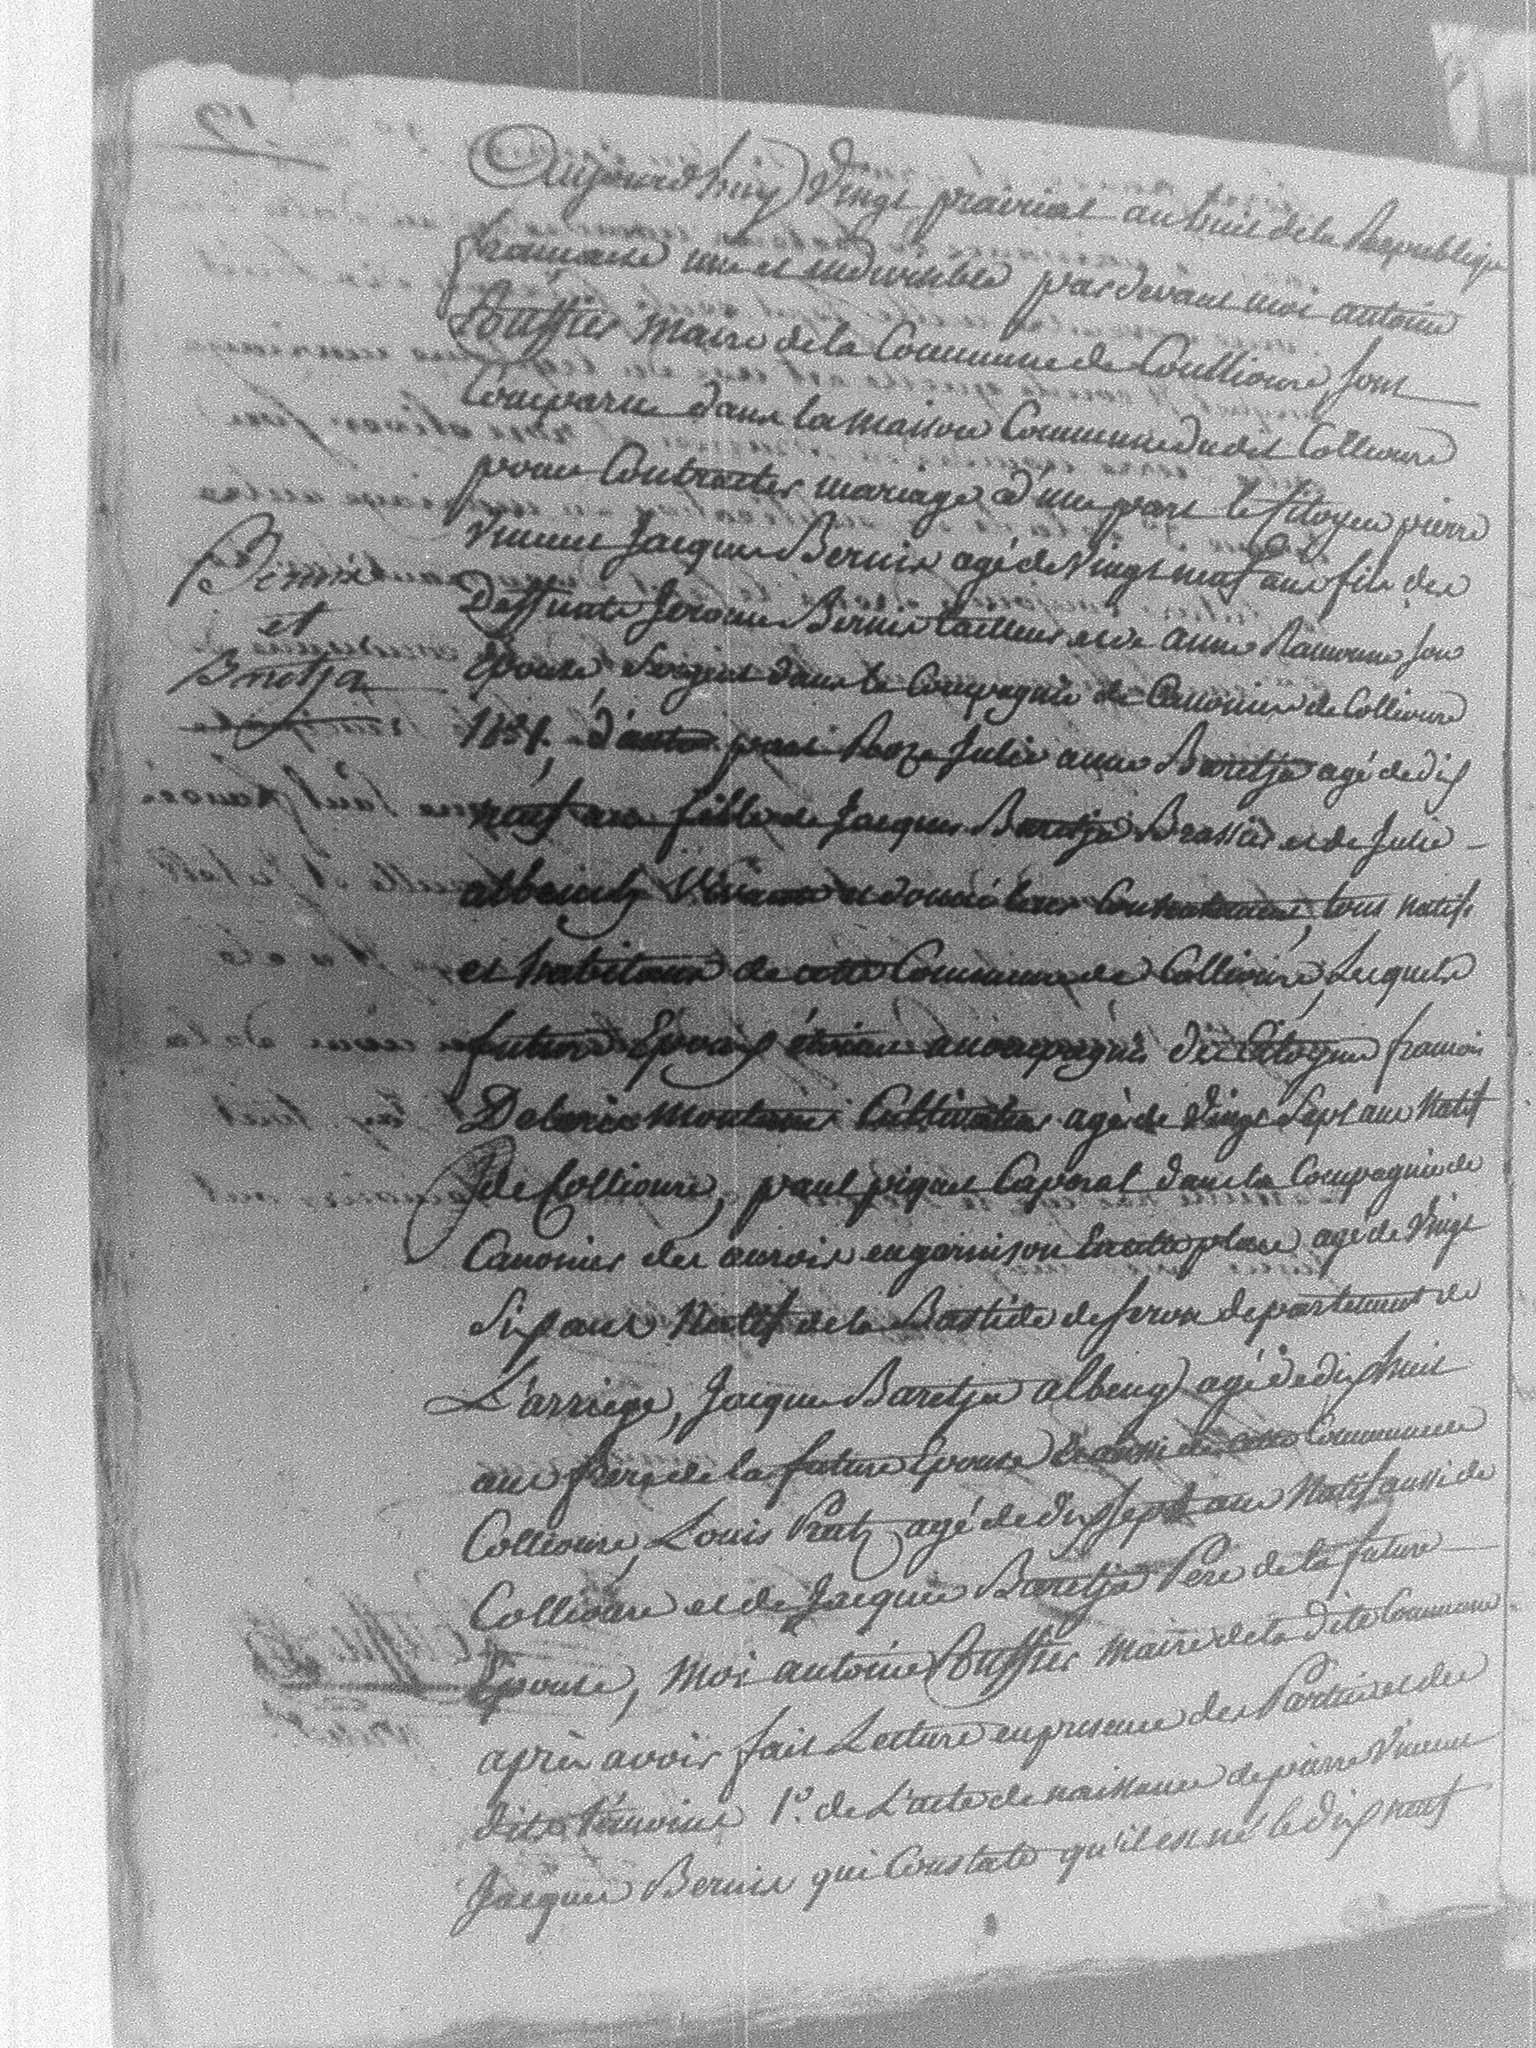 Aujourd'huy vingt prairial an huit de la Republique
francaise une et indivisible pardevant moi antoine
Bouffier maire de la Commune de Coullioure sont
Comparue dans la maison Commune dudit Collioure
pour Contracter mariage d'une part le Citoyen pierre
vincent Jacques Bernis agé de vingt neuf ans fils de
Deffunts Jerome Bernis tailleur et de anne son
Epouse Sergent dans la Compagnie de Canonier de Collioure
Bernis
et
Baretja
d'autre part Roze Julie anne Baretja agé de dix
neuf ans fille de Jacques Baretja Brassier et de Julie
albeing tous natifs
et habitans de cette Commune de Collioure, Lesquels
futurs Epoux étoient accompagnés des Citoyens francois
Deloris Cultivateur agé de vingt Sept ans Natif
de Collioure, paul piquet Caporal dans la Compagnie de
Canonier en garnison En cette place agé de vingt
Six ans Natif de la Bastide de Serou departement de
L'arriege, Jacques Baretja albeing agé de dix huit
ans frere de la future Epouse de cette Commune
Collioure, Louis Prats agé de dix Sept ans Natif aussi de
Collioure et de Jacques Baretja Pere de la future
Epouse, Moi antoine Bouffier maire de la dite Commune
après avoir fait Lecture en presence des Parties et des
dits témoins 1º. de L'acte de naissance de pierre Vincent
Jacques Bernis qui Constate qu'il est né le dix neuf